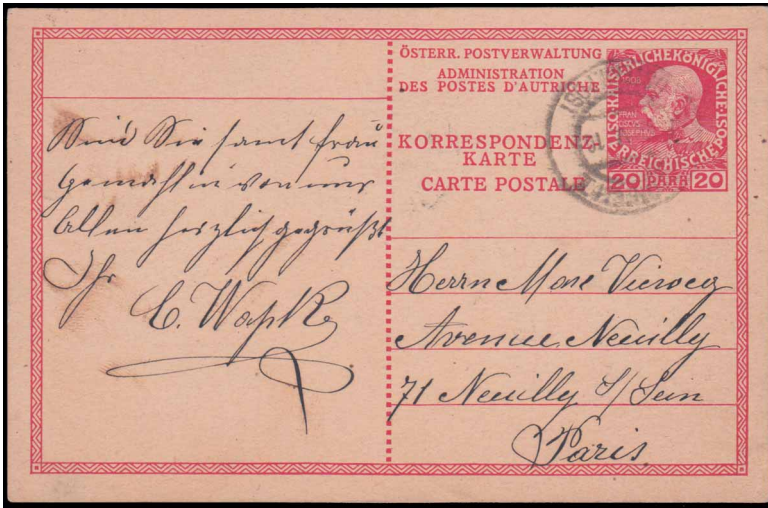 ÖSTERR. POSTVERWALTUNG
ADMINISTRATION
DES POSTES D'AUTRICHE
KORRESPONDENZ-
KARTE
CARTE POSTALE
1908
FRAN
CISCVS
IOSEPHVS
20 PARA 20
Seid Sie samt Frau
Gemahlin von uns
Allen herzlich gegrüßt
Ihr
C.
Herrn
Avenue Neuilly
71 Neuilly S/Sein
Paris.